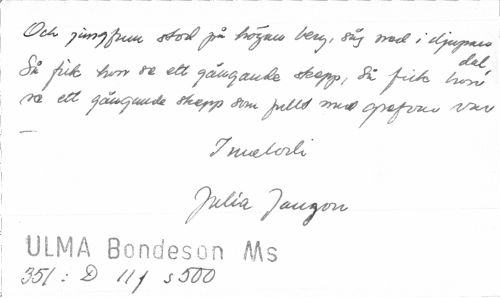 Och jungfrun stod på högan berg, såg ned i djupan dal
Så fick hon se ett gångande skepp, Så fick hon
se ett gångande skepp som fullt med grefvar var
—
I melodi
Julia Jangon
ULMA Bondeson Ms
351 : D 11f s 500